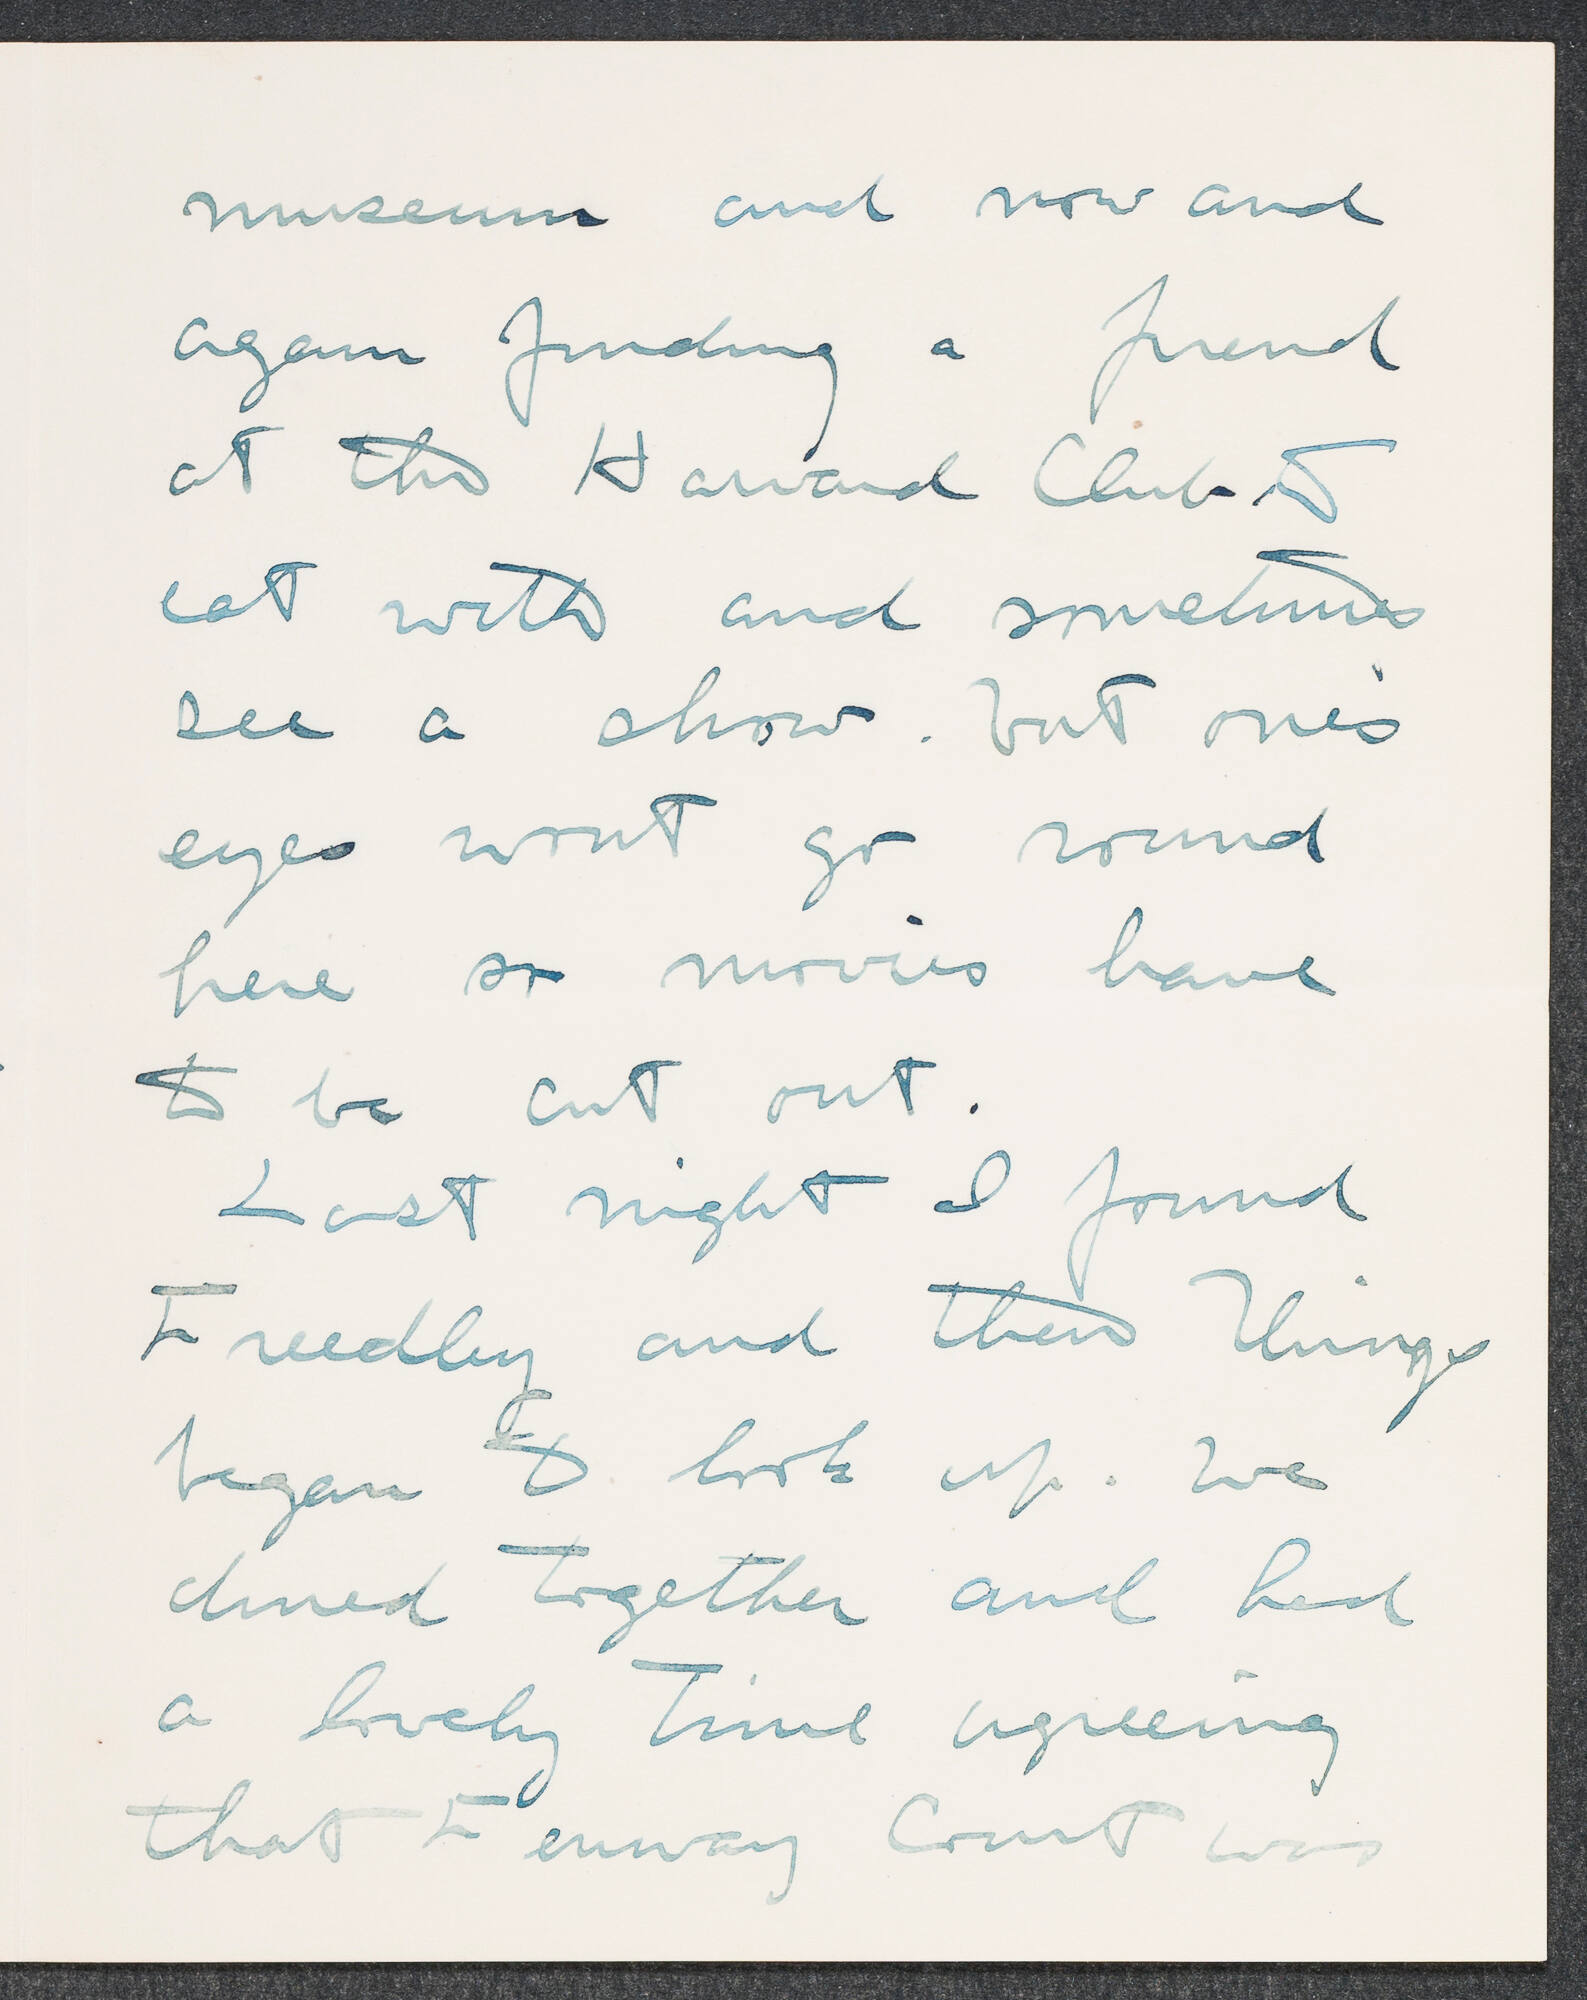 museum and now and
again finding a friend
at the Harvard Club to
eat with and sometimes
see a show. but one's
eyes wont go round
here so movies have
to be cut out.
Last night I found
Freedley and then things
began to look up. We
dined together and had
a lovely time agreeing
that Fenway Court was